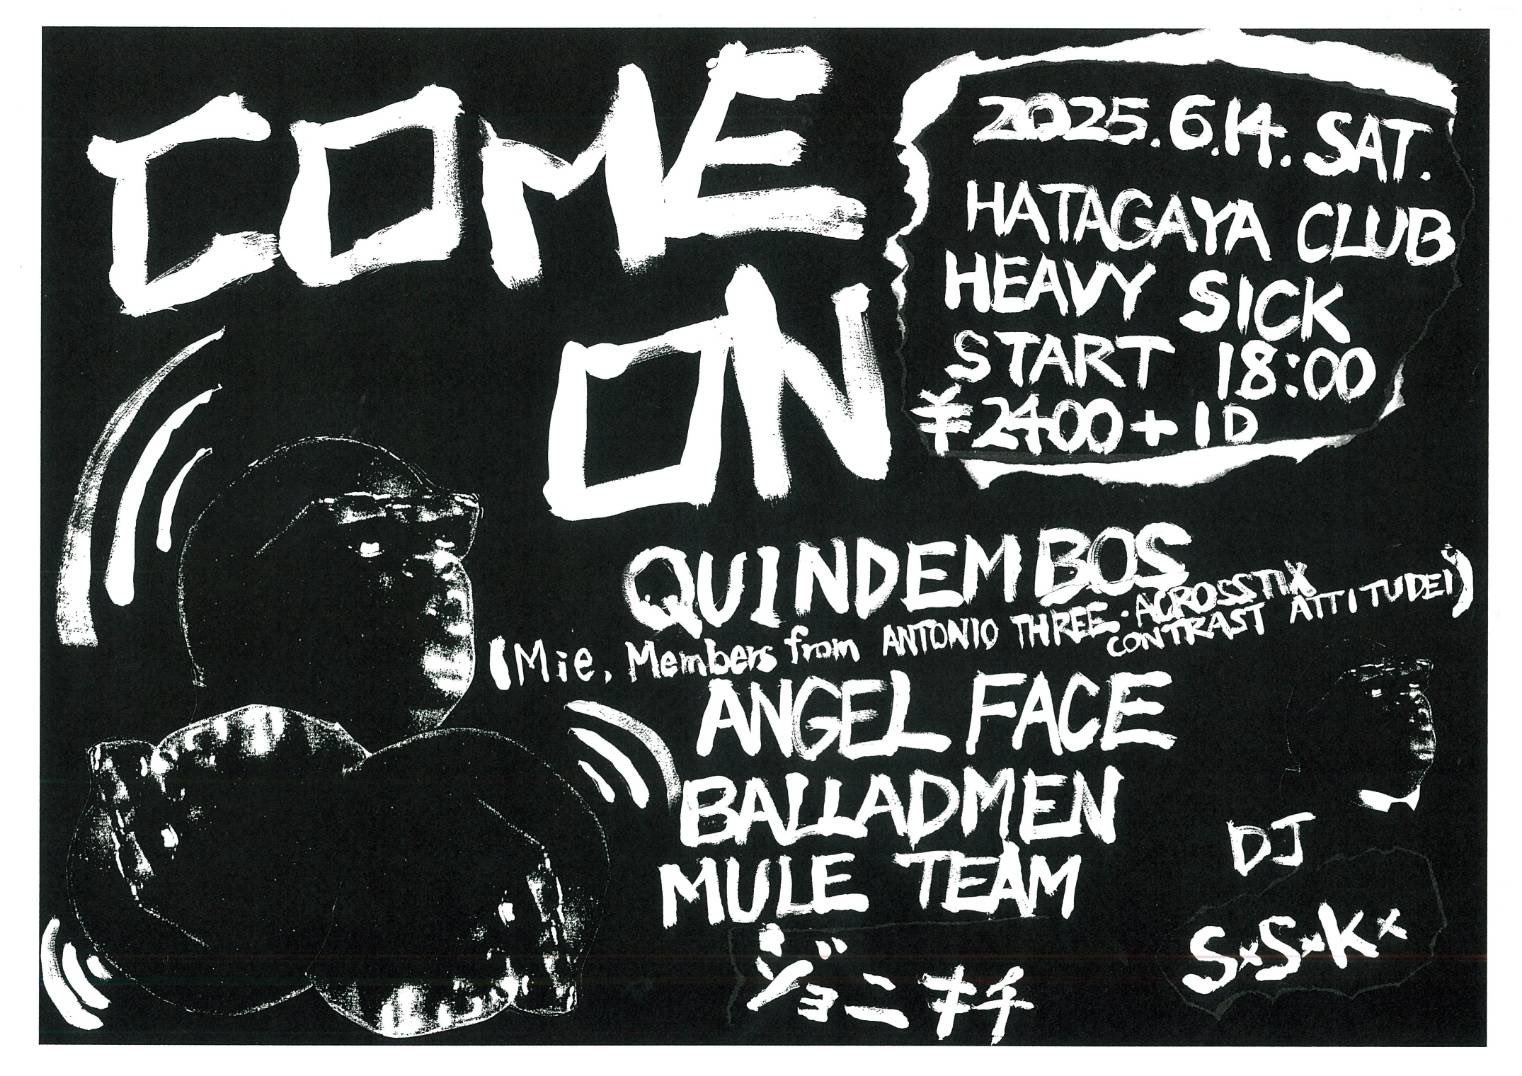 COME
ON
2025.6.14. SAT.
HATAGAYA CLUB
HEAVY SICK
START 18:00
¥2400+1D
QUINDEMBOS
(Mie, Members from ANTONIO THREE・ACROSSTIX
CONTRAST ATTITUDE!)
ANGEL FACE
BALLADMEN
MULE TEAM
ジョニキチ
DJ
S×S×K×